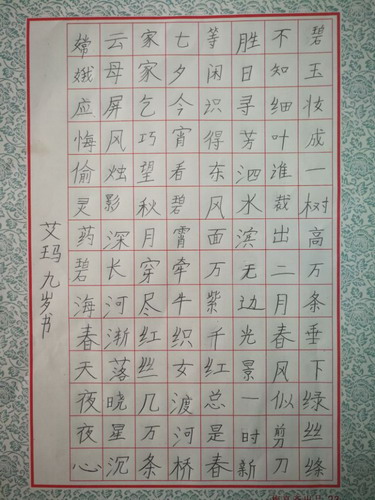 碧玉妆成一树高万条垂下绿丝绦
不知细叶谁裁出二月春风似剪刀
胜日寻芳泗水滨无边光景一时新
等闲识得东风面万紫千红总是春
七夕今宵看碧霄牵牛织女渡河桥
家家乞巧望秋月穿尽红丝几万条
云母屏风烛影深长河渐落晓星沉
嫦娥应悔偷灵药碧海春天夜夜心
艾玛九岁书